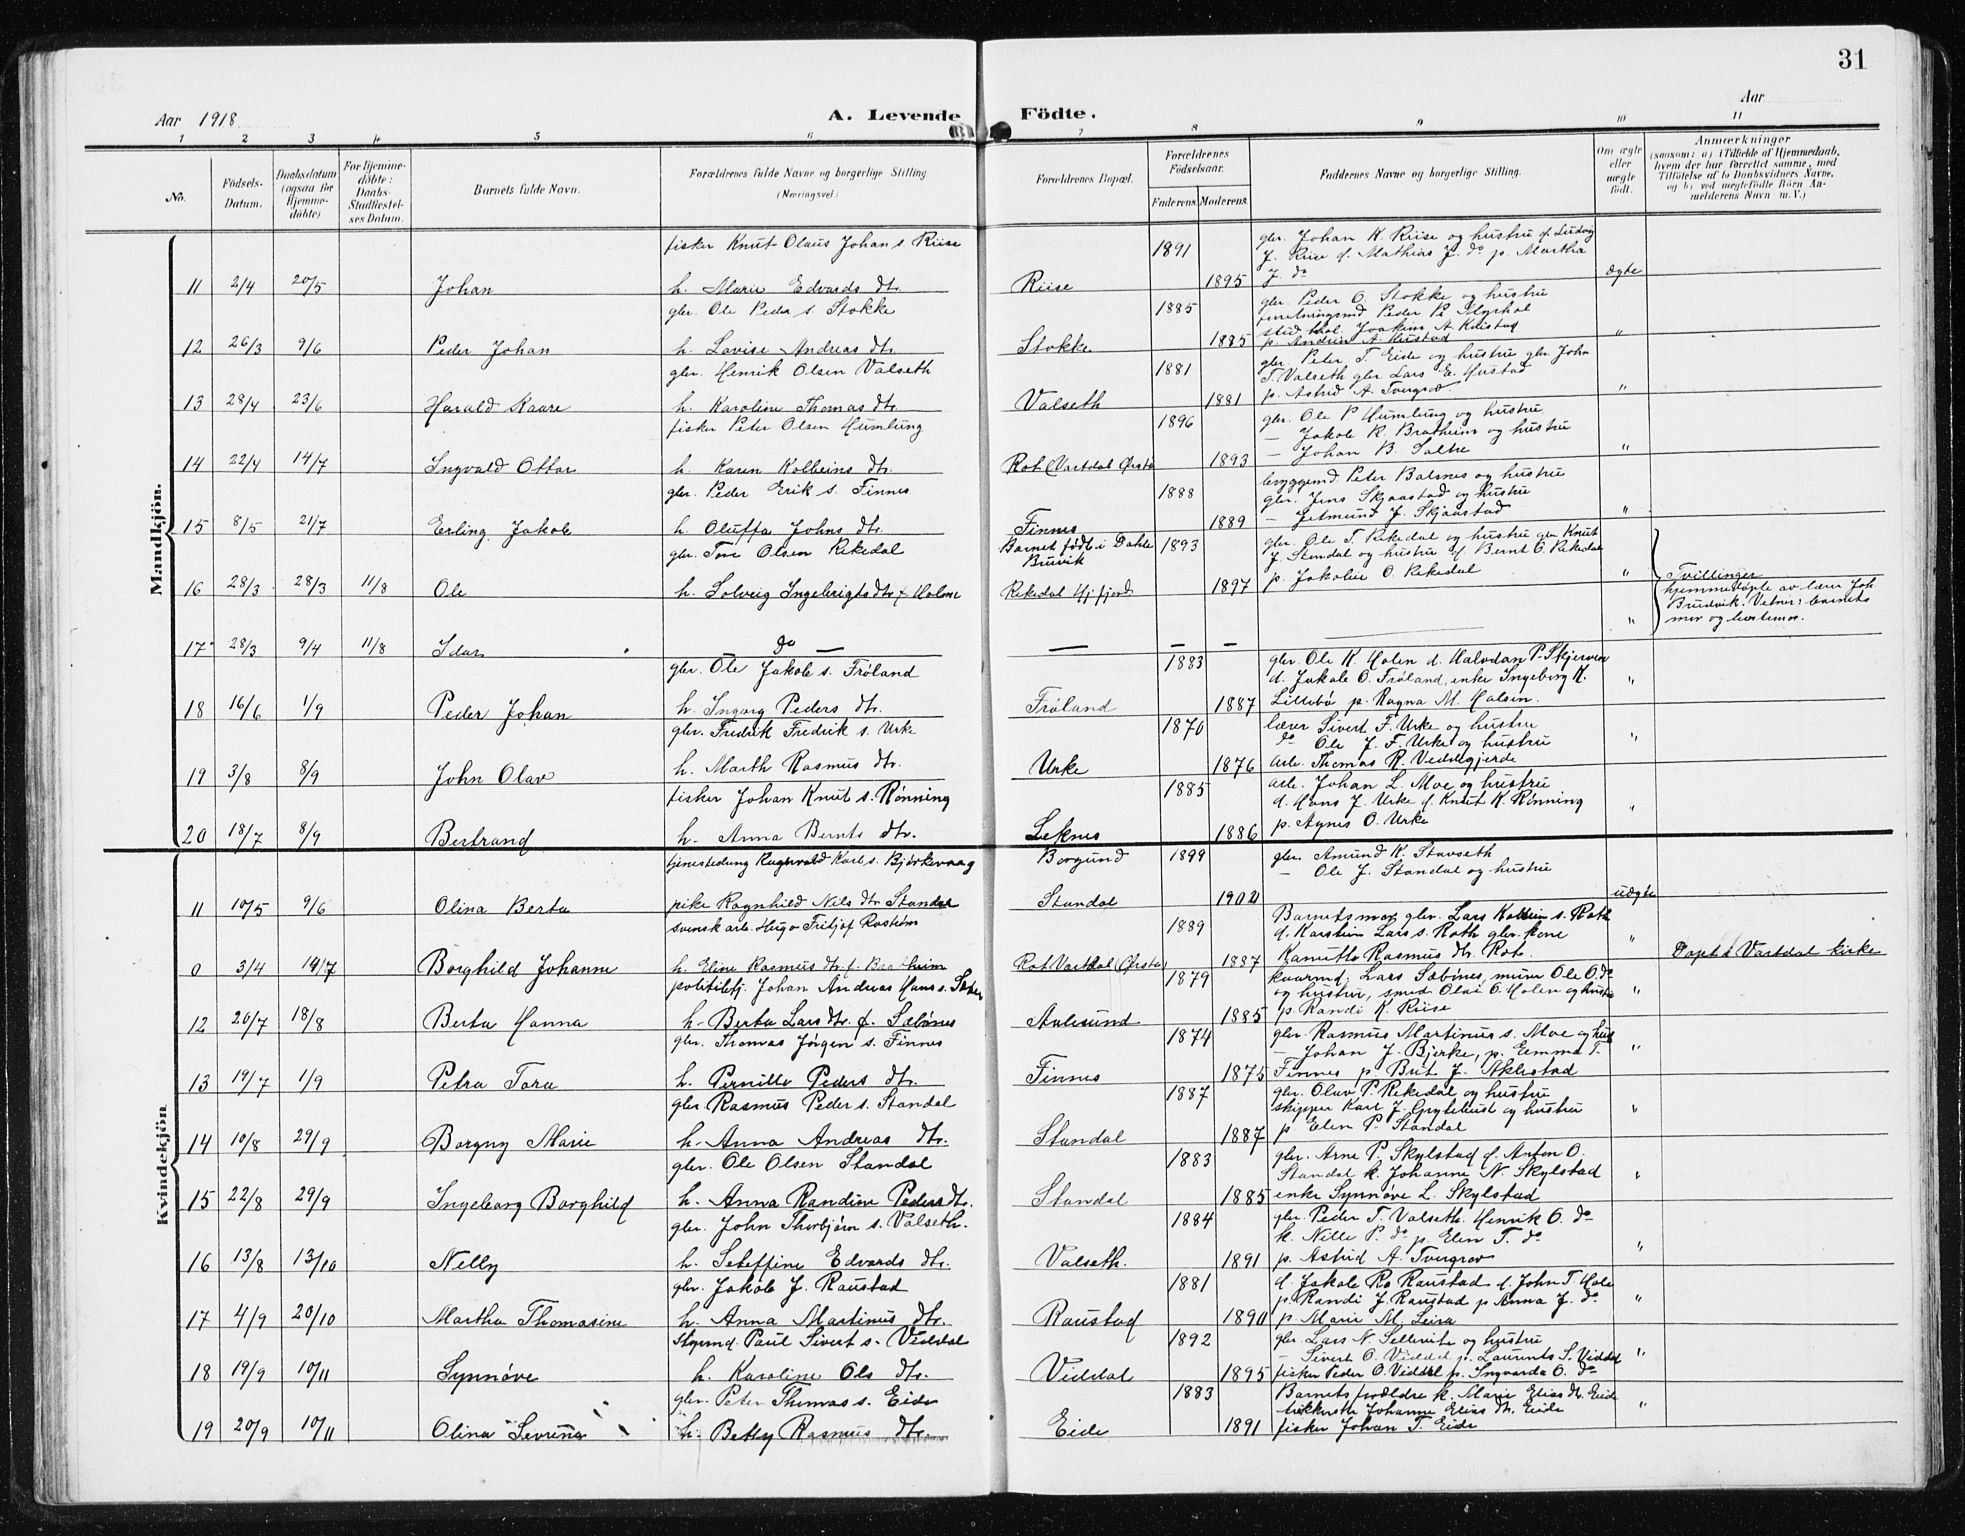 31
Aar 1918.
A. Levende Födte.
Aar
1 2 3 4 5 6 7 8 9 10 11
No.
Födsels-Datum.
Daabsdatum (ogsaa for Hjemme-döbte)
For Hjemme-döbte: Daabs-Stadfæstel-ses Datum.
Barnets fulde Navn.
Forældrenes fulde Navne og borgerlige Stilling (Næringsvei.)
Forældrenes Bopæl.
Forældrenes Födselsaar.
Faderens. Moderens.
Faddernes Navne og borgerlige Stilling.
Om ægte eller uægte födt.
Anmærkninger
(saasom: a) i Tilfælde af Hjemmedaab, hvem der har forrettet samme, med Tilföielse af to Daabsvidners Navne, og b) ved uægtefödte Börn An-melderens Navn m. V.)
Mandkjön.
fisker Knut Olaus Johan s. Riise 1891 gbr. Johan K. Riise og hustru d. Ludvig
J. Riise d. Mathias J. do p. Martha
11 2/4 20/5 Johan h. Marie Edvards dtr. Riise 1895 J. do ægte
gbr. Ole Peder s. Stokke 1885 gbr. Peder O. Stokke og hustru
Peder P. Myrhol
Joakim A.
12 26/3 9/6 Peder Johan h. Lovise Andreas dtr. Stokke 1885 p. Andrea A. Hustad "
gbr. Henrik Olsen Valseth 1881 gbr. Peter T. Eide og hustru gbr. John
T. Valseth gbr. Lars E. Hustad
13 28/4 23/6 Harald Kaare h. Karoline Thomas dtr. Valseth 1881 p. Astrid A. Tvergrov "
fisker Peter Olsen Humlung 1896 gbr. Ole P. Humlung og hustru
— Jakob R. Bratheim og hustru
14 22/4 14/7 Ingvald Ottar h. Karen Kolbeins dtr. Rot (Vartdal Ørsta 1893 — Johan B. Saltre "
gbr. Peder Erik s. Finnes 1888 byggemd. Peter Balsnes og hustru
gbr. Jens Skjaastad og hustru
15 8/5 21/7 Erling Jakob h. Oluffa Johns dtr. Finnes 1889 — Jetmund J. Skjaastad "
gbr. Tore Olsen Rekedal Barnet født i Dahle Bruvik 1893 gbr. Ole T. Rekedal og hustru gbr. Knut
J. Standal og hustru d. Bernt O. Rekedal
16 28/3 28/3 11/8 Ole h. Solveig Ingebrigts dtr. f. Holm Rekedal Hj.fjord 1897 p. Jakobie O. Rekedal " Tvillinger
hjemmedøpte av lærer Joh.
Brudvik. Vitner: barnets
mor og bestemor.
17 28/3 9/4 11/8 Idar — do — — — — "
gbr. Ole Jakob s. Frøland 1883 gbr. Ole K. Holen d. Halvdan P. Skjerven
d. Jakob O. Frøland, enke Ingeborg K.
18 16/6 1/9 Peder Johan h. Ingorg Peders dtr. Frøland 1887 Lillebø p. Ragna M. Holsen. "
gbr. Fredrik Fredrik s. Urke 1870 lærer Sivert F. Urke og hustru
do Ole J. F. Urke og hustru
19 3/8 8/9 John Olav h. Marth Rasmus dtr. Urke 1876 arb. Thomas R. Veddegjerde "
fisker Johan Knut s. Rønning 1885 arb. Johan L. Moe og hustru
d. Hans J. Urke d. Knut K. Rønning
20 18/7 8/9 Bertrand h. Anna Bernts dtr. Leknes 1886 p. Agnes O. Urke "
Kvindekjön
tjenestedreng Ragnvald Karl s. Bjørkevaag Borgund 1899 gbr. Amund K. Stavseth
— Ole J. Standal og hustru
11 10/5 9/6 Olina Berta pike Ragnhild Nils dtr. Standal Standal 1902 uægte
svensk arb. Hugo Fritjof Roström 1889 Barnets mor, gbr. Lars Kolbein s. Roth
d. Karstein Lars s. Roth gbr. kone
0 3/4 14/7 Borghild Johanne h. Eline Rasmus dtr. f. Bratheim Rot Vartdal (Ørsta) 1887 Kanutte Rasmus dtr. Rot. " Døpt i Vartdal kirke
politibtj. Johan Andreas Hans s. 1879 Lars Sæbönes, murer Ole O. do
og hustru, smed Olai O. Holen og hustru
12 20/7 18/8 Berta Hanna h. Berta Lars dtr. f. Sæbönes Aalesund 1885 p. Randi K. Riise "
gbr. Thomas Jørgen s. Finnes 1874 gbr. Rasmus Martinus s. Moe og hust
— Johan J. Bjerke, p. Emma T.
13 19/7 1/9 Petra Tora h. Pernille Peders dtr. Finnes 1875 Finnes p. Brit J. Aklestad "
gbr. Rasmus Peder s. Standal 1887 gbr. Olav P. Rekedal og hustru
skipper Karl J. Grytebust og hustru
14 10/8 29/9 Borgny Marie h. Anna Andreas dtr. Standal 1887 p. Elen P. Standal "
gbr. Ole Olsen Standal 1883 gbr. Arne P. Skylstad d. Anton O.
Standal k. Johanne N. Skylstad
15 22/8 29/9 Ingeborg Borghild h. Anna Randine Peders dtr. Standal 1885 enke Synnøve L. Skylstad "
gbr. John Thorbjørn s. Valseth. 1884 gbr. Peder T. Valseth. Henrik O. do
k. Nille P. do p. Elen T. do
16 13/8 13/10 Nelly h. Seteffine Edvards dtr. Valseth. 1891 p. Astrid A. Tvergrov "
gbr. Jakob J. Raustad 1881 d. Jakob Raustad d. John T. Hole
p. Randi J. Raustad p. Anna J. do
17 4/9 20/10 Martha Thomasine h. Anna Martinus dtr. Raustad 1890 p. Marie M. Leira "
Styrmd. Paul Sivert s. Viddal 1892 gbr. Lars N. Sellereite og hustru
— Sivert O. Viddal p. Laurents S. Viddal
18 19/9 10/11 Synnøve h. Karoline Ols dtr. Viddal 1895 fisker Peder O. Viddal p. Ingvarda O. do "
gbr. Peter Thomas s. Eide 1883 Barnets forældre k. Marie Elias dtr. Eide
Johanne Elias dtr. Eide
19 20/9 10/11 Olina Severina h. Betty Rasmus dtr. Eide 1891 fisker Johan T. Eide "